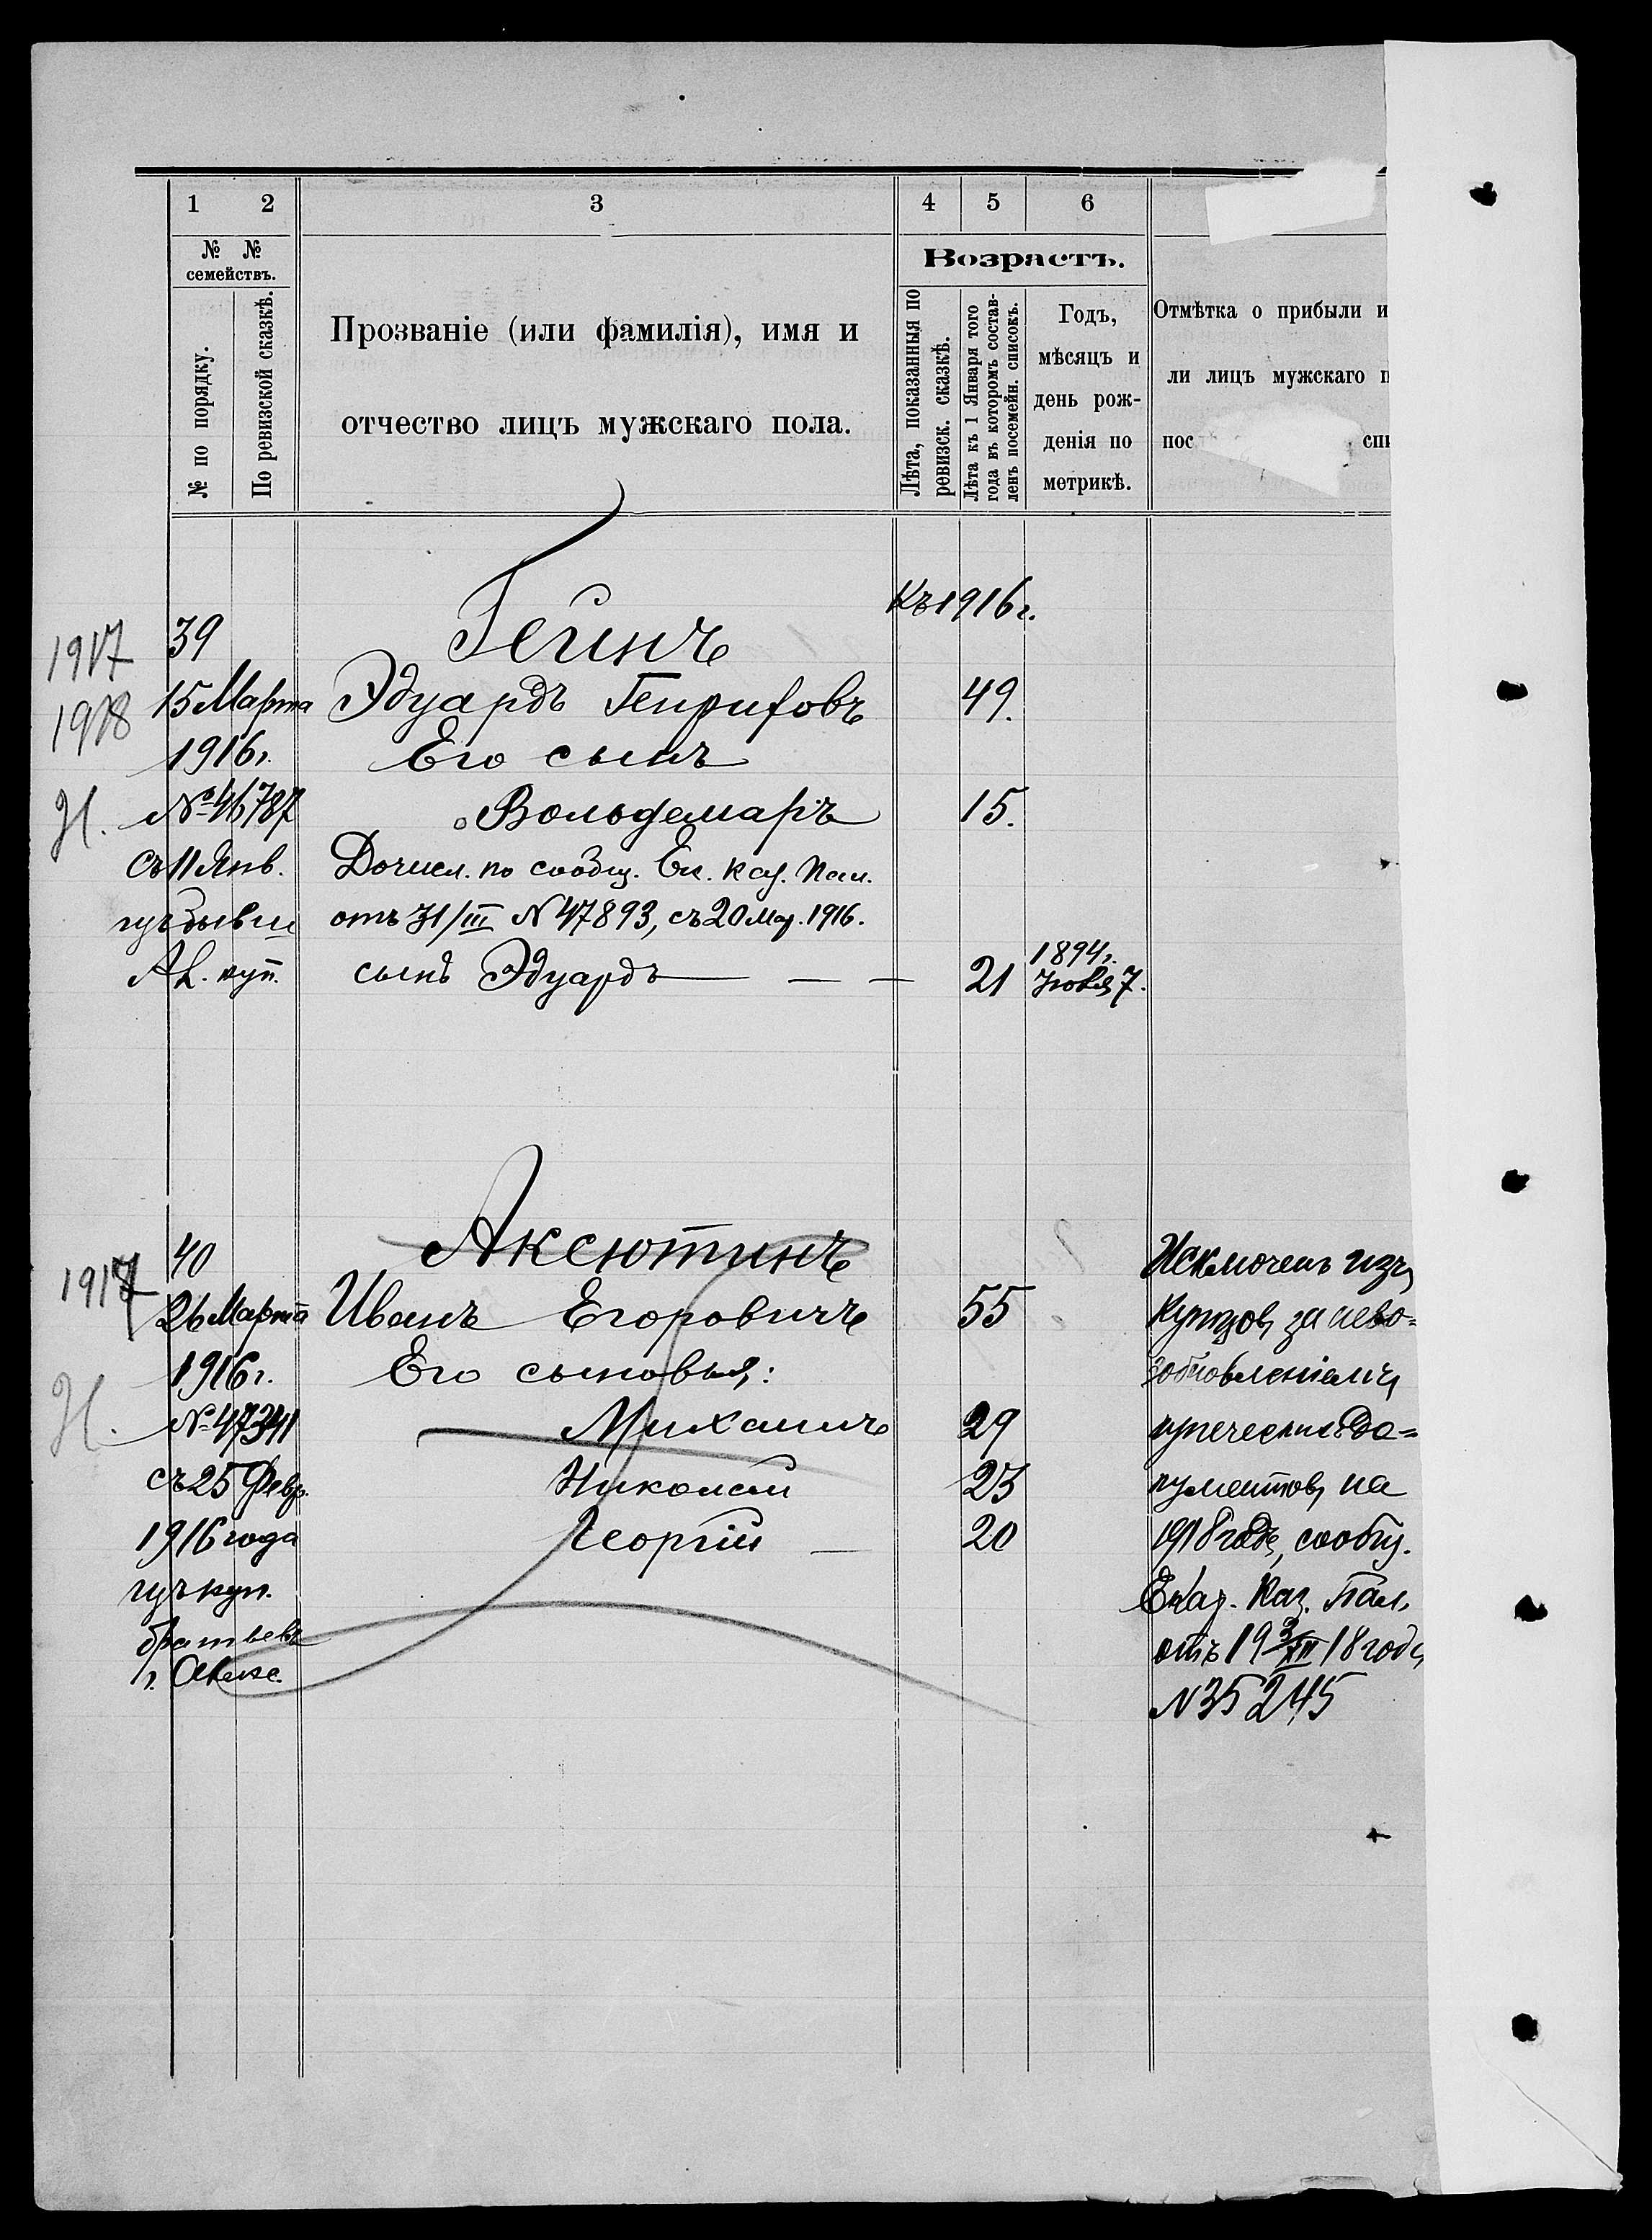 1 2 3 4 5 6
№ № семействъ.
№ по порядку.
По ревизской сказкѣ.
Прозваніе (или фамилія), имя и
отчество лицъ мужскаго пола.
Возрастъ.
Лѣта, показанныя по
ревизск. сказкѣ.
Лѣта къ 1 Января того
года въ которомъ состав-
ленъ посемейн. списокъ.
Годъ,
мѣсяцъ и
день рож-
денія по
метрикѣ.
Отмѣтка о прибыли и
ли лицъ мужскаго п
пос спи
Къ 1916 г.
1917 39 Гейнъ
1918 15 Марта Эдуардъ Генриховъ 49.
1916 г. Его сынъ
Н. № 46787 Вольдемаръ 15.
съ 11 Янв. Дочисл. по сообщ. Ек. Каз. Пал.
отъ 31/III N 47893, съ 20 Мар. 1916.
куп. сынъ Эдуардъ 21 1894 г.
7.
40 Аксютинъ
1917 26 Марта Иванъ Егоровичъ 55
1916 г. Его сыновья:
Н. № 47341 Михаилъ 29
съ 25 Февр. Николай 23
1916 года Георгій 20
изъ куп.
братьевъ
Исключенъ изъ
купцовъ за нево-
зобновленіемъ
купеческихъ до-
кументовъ на
1918 годъ, сообщ.
Екат. Каз. Пал.
отъ 19 3/XII 18 года
N 35245